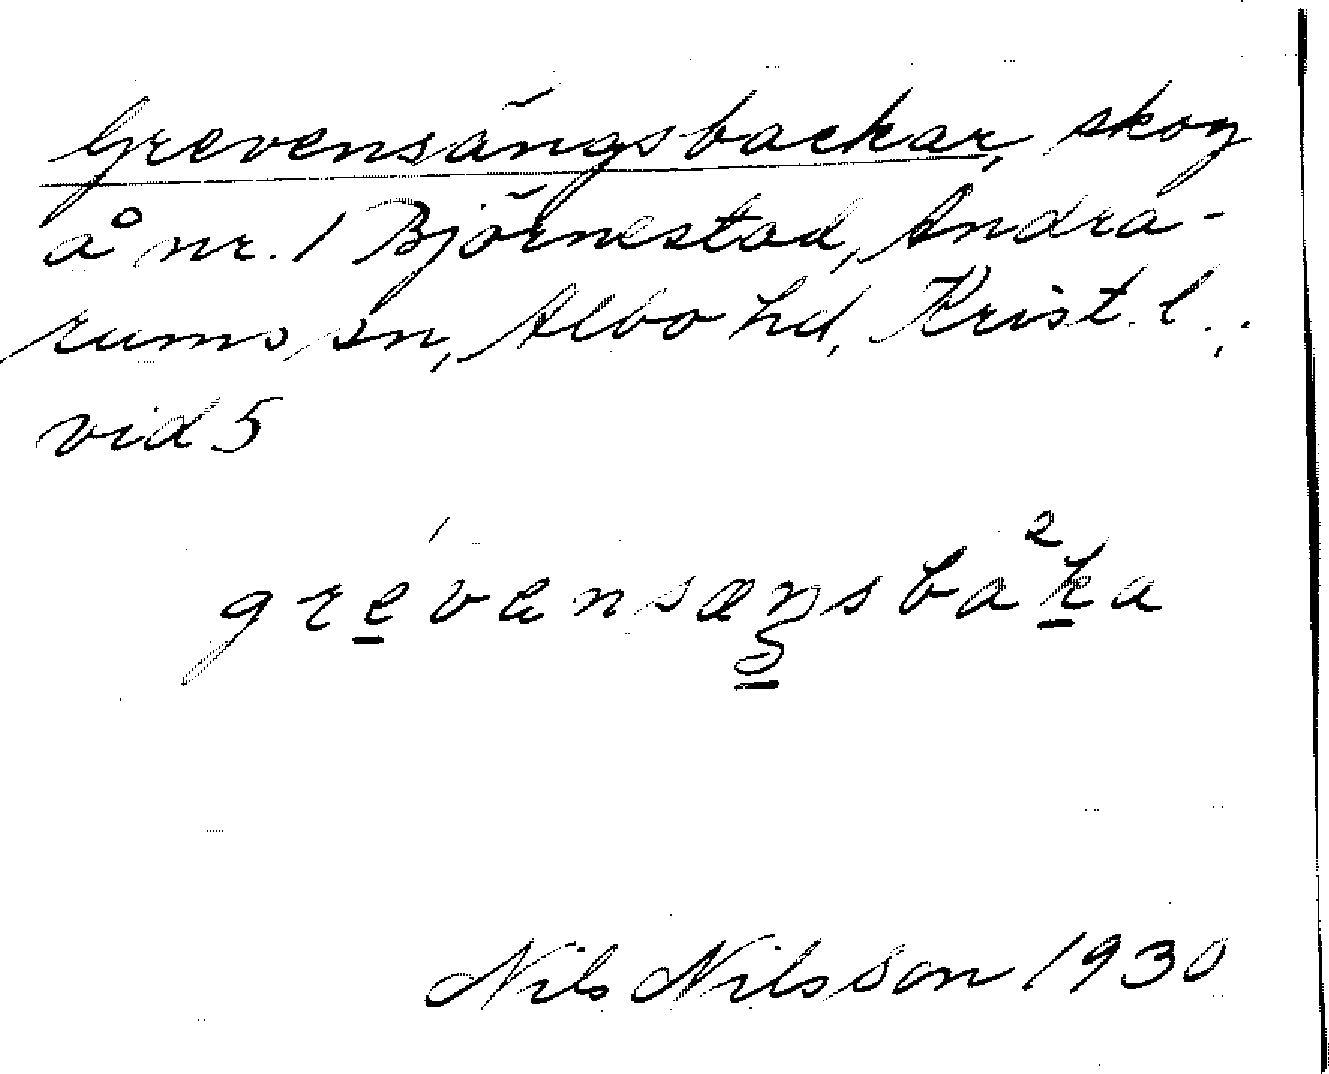 Grevensängsbackar, skog
å nr. 1 Björnestad, Andra-
rums sn, Albo hd, Krist. l.,
vid 5
grevensæŋsbaka
Nils Nilsson 1930